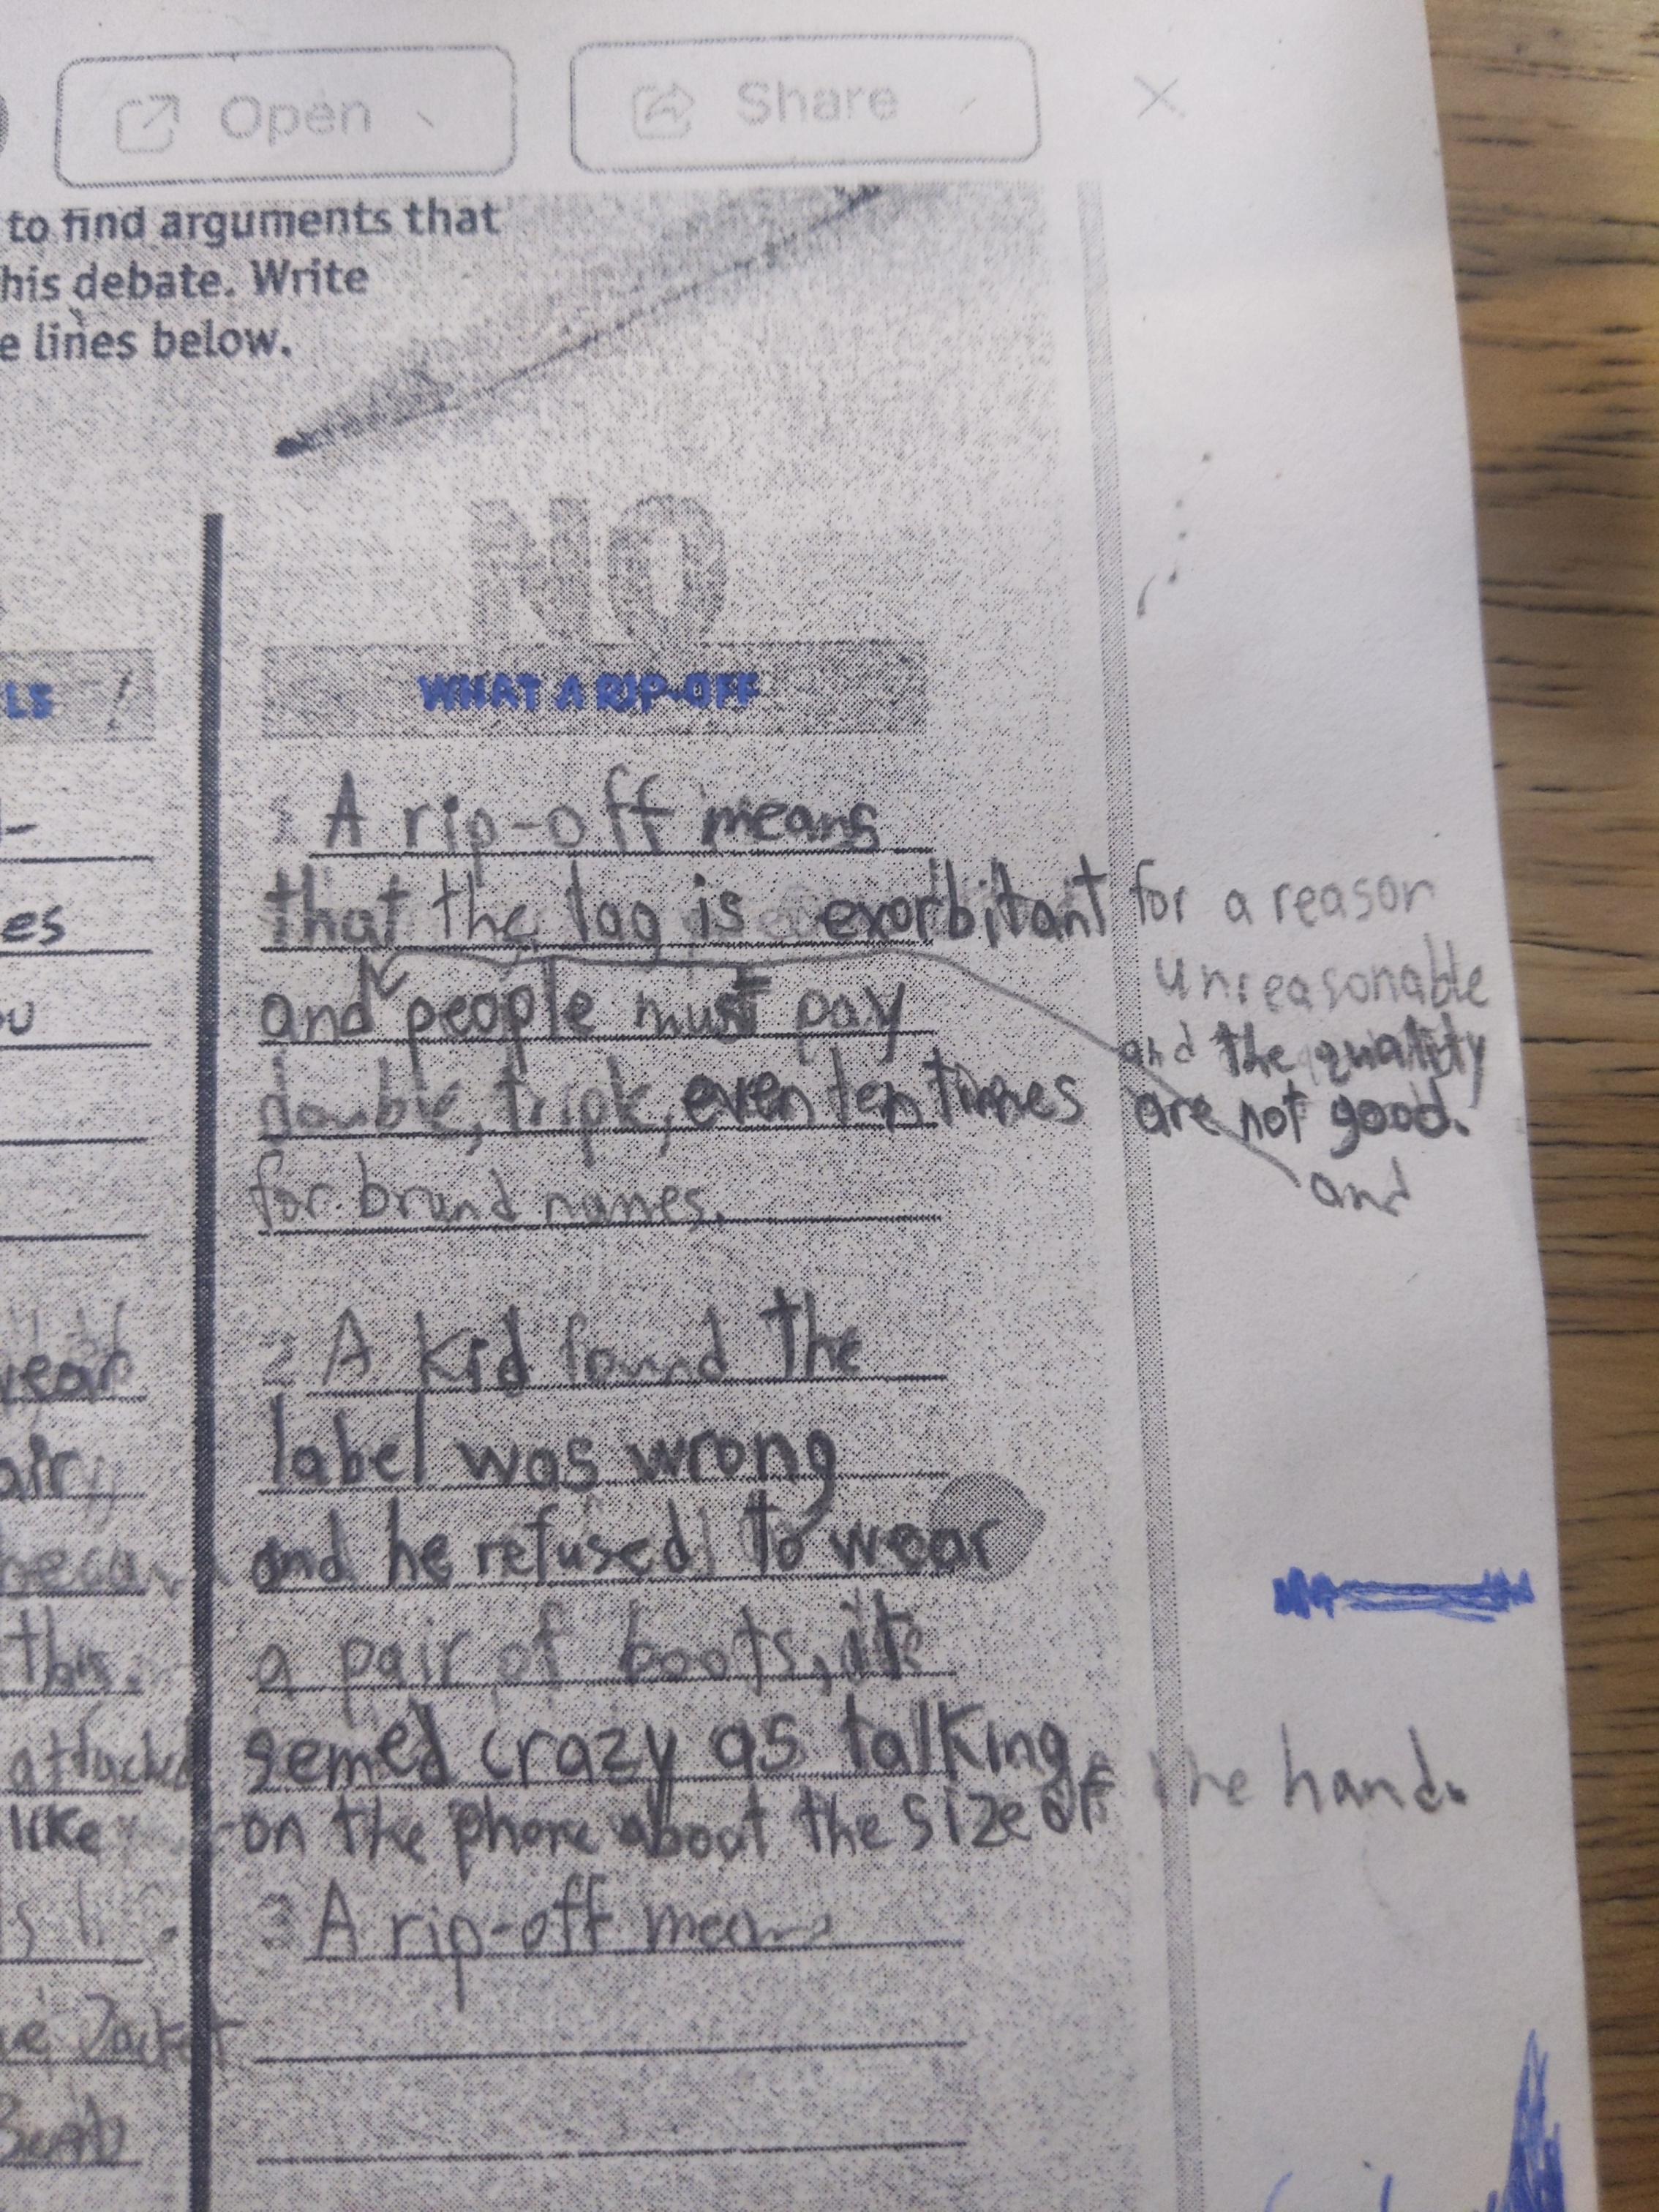 Open
Share
to find arguments that
his debate. Write
e lines below.
NO
LS !
WHAT A RIP-OFF
1 A rip-off means
that the tag is exorbitant for a reason
unreasonable
and people must pay
and the quality
double, triple, even ten times
are not good.
and
for brand names.
2 A kid found the
label was wrong
and he refused to wear
a pair of boots, it
semed crazy as talking
on the phone about the size of the hand.
3 A rip-off means
es
wear
air
this.
attached
like
Jacket